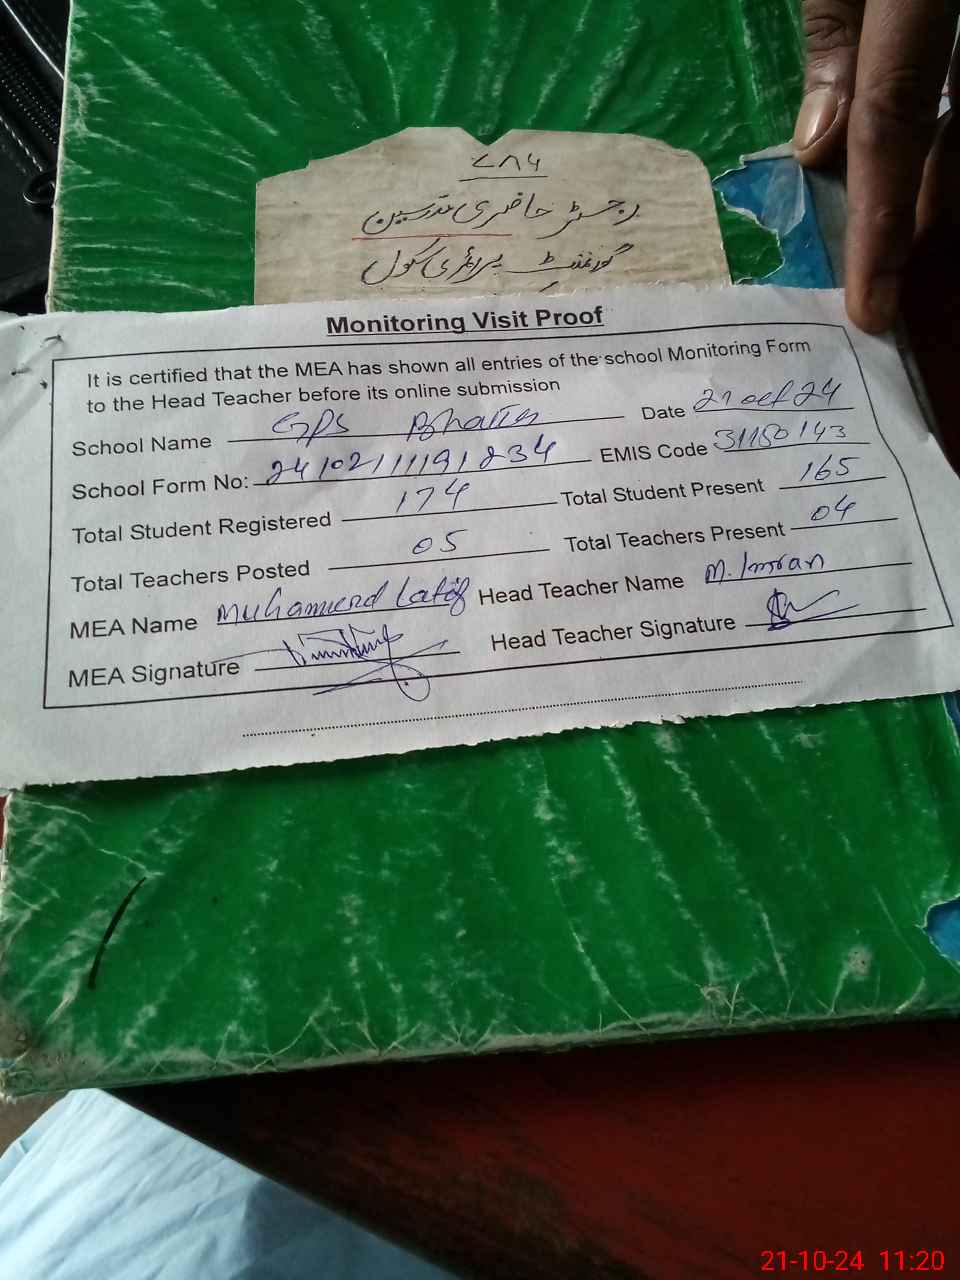 ۷۸۶
رجسٹر حاضری مدرسین
گورنمنٹ پرائمری سکول
Monitoring Visit Proof
It is certified that the MEA has shown all entries of the school Monitoring Form
to the Head Teacher before its online submission
School Name GPS Date 21 oct 24
School Form No: EMIS Code 31180143
Total Student Registered 174 Total Student Present 165
Total Teachers Posted 05 Total Teachers Present 04
MEA Name Muhammad Latif Head Teacher Name M. Imran
MEA Signature Head Teacher Signature
21-10-24 11:20